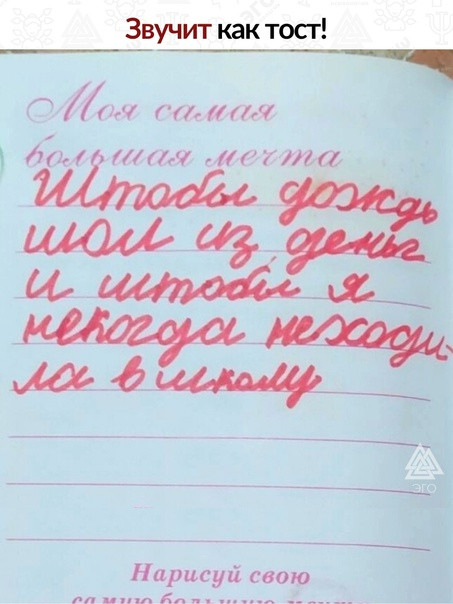 Звучит как тост!
Моя самая
большая мечта
Штобы дождь
шол из деньг
и штобы я
некогда неходи-
ла в школу
эго
Нарисуй свою
самую большую мечту